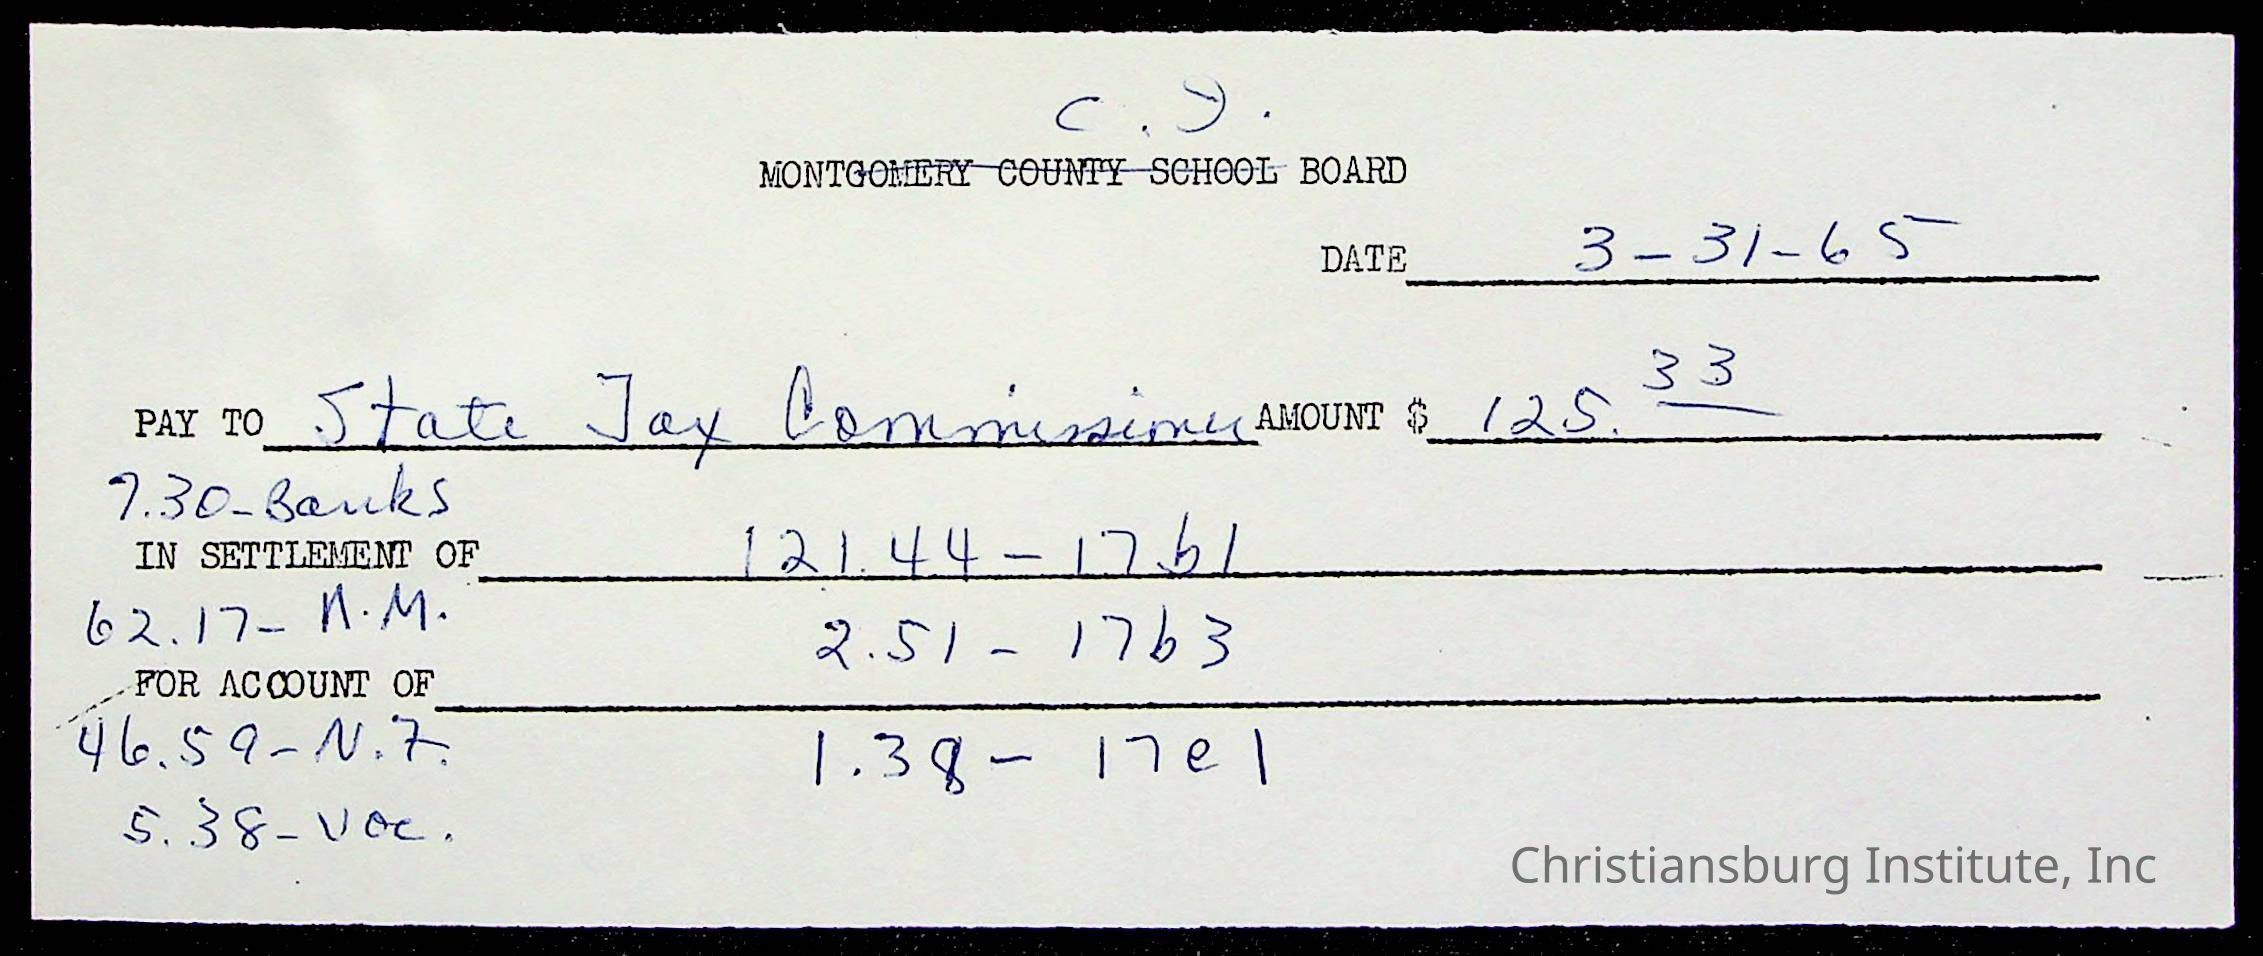 C. I.
MONTGOMERY COUNTY SCHOOL BOARD
DATE 3-31-65
PAY TO State Tax Commissioner AMOUNT $ 125.33
7.30-Banks
IN SETTLEMENT OF 121.44-17b1
62.17- N.M.
2.51-17b3
FOR ACCOUNT OF
46.59-N.F.
1.38-17e1
5.38-Voc.
Christiansburg Institute, Inc